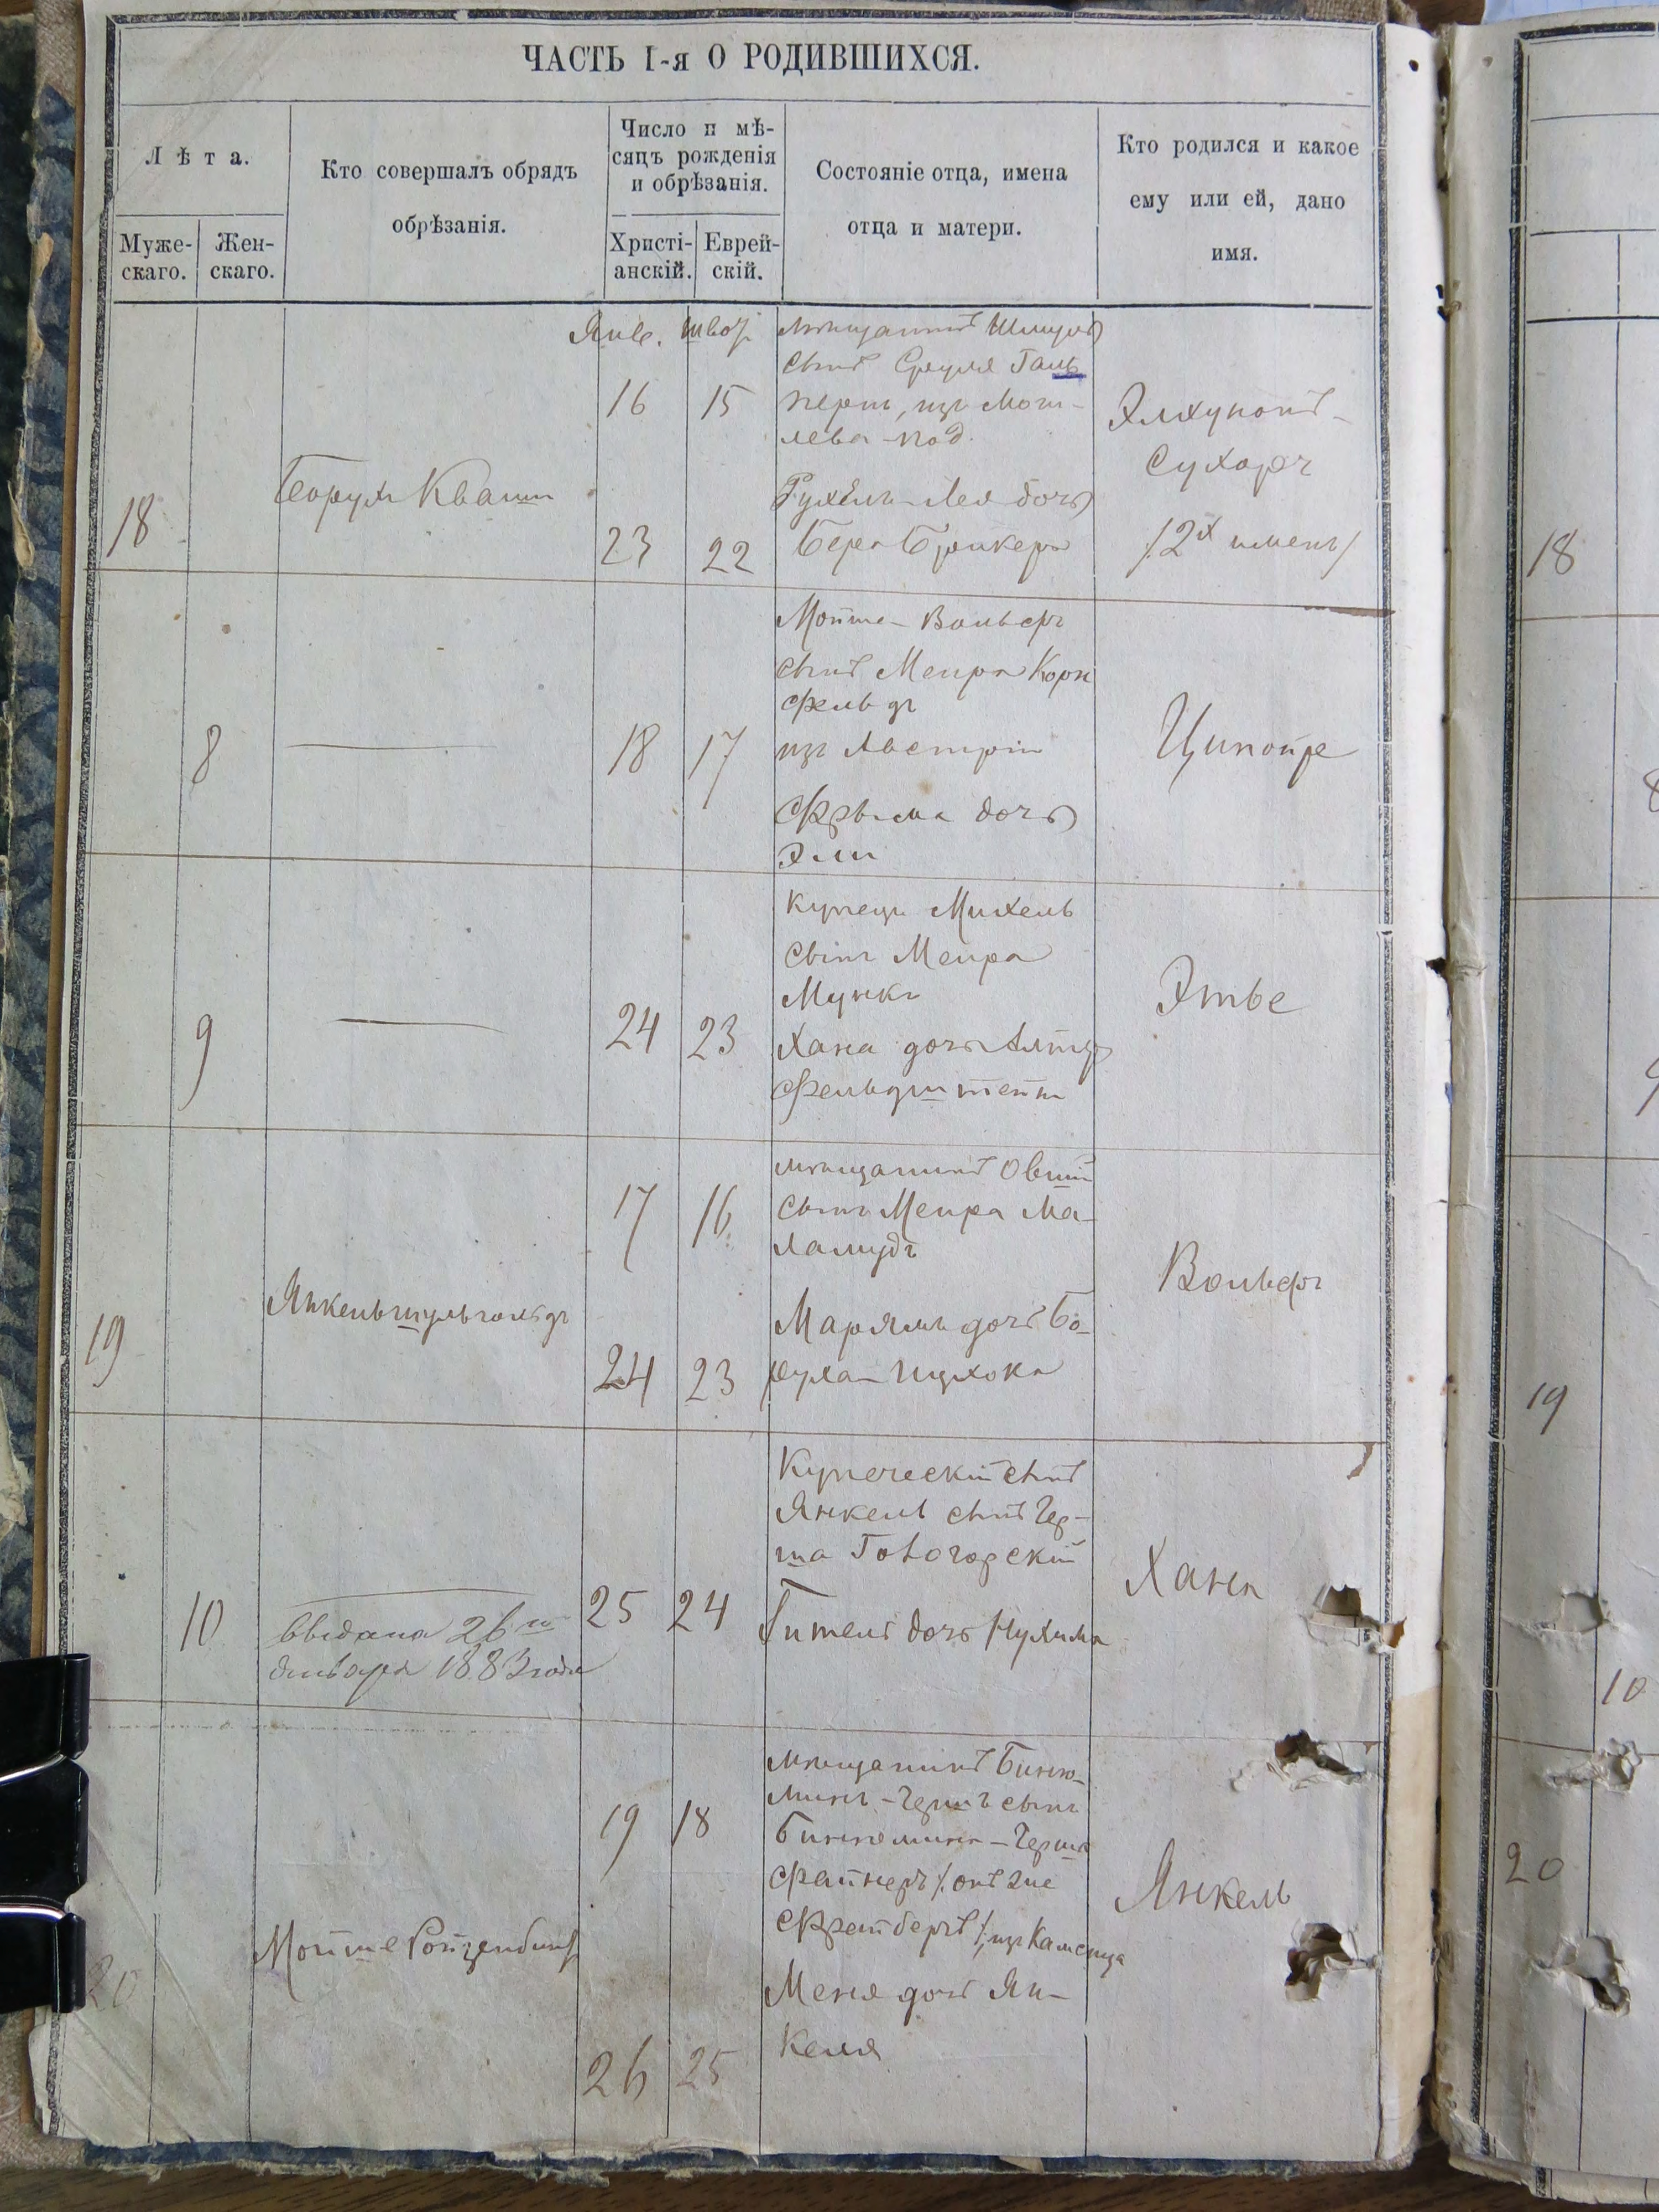 ЧАСТЬ I-я О РОДИВШИХСЯ.
Лѣта.
Муже-
скаго.
Жен-
скаго.
Кто совершалъ обрядъ
обрѣзанія.
Число и мѣ-
сяцъ рожденія
и обрѣзанія.
Христі-
анскій.
Еврей-
скій.
Состояніе отца, имена
отца и матери.
Кто родился и какое
ему или ей, дано
имя.
18
Борухъ Квашъ
Янв.
16
23
15
22
мѣщанинъ Шмуль
сынъ Сруля Галь
перинъ, изъ Моги-
лева-под.
Рухель-Лея дочь
Бера
Элхунонъ-
Сухоръ
/2х именъ/
18
8
18
17
Мойше-Вольфъ
сынъ Меира Корн
фельдъ
изъ Австріи
Фрыма дочь
Эли
Ципойре
9
24
23
Купецъ Михель
сынъ Меира
Мункъ
Хана дочь
Фельдштейнъ
Этье
19
Янкель Шульгольдъ
17
24
16
23
мѣщанинъ Овшій
сынъ Меира Ма-
ламудъ
Марямъ дочь Бо-
руха-Ицхока
Вольфъ
19
10
выдана 26го
Января 1883 года
25
24
Купеческій сынъ
Янкель сынъ Гер-
ша
Гитель дочь Нухима
Хана
10
20
Мойше
19
26
18
25
мѣщанинъ Биню-
минъ-Гершъ сынъ
Бинюмина-Герша
Файнеръ /: онъ же
Фрейбергъ /: изъ Каменца
Меня дочь Ян-
келя
Янкель
20